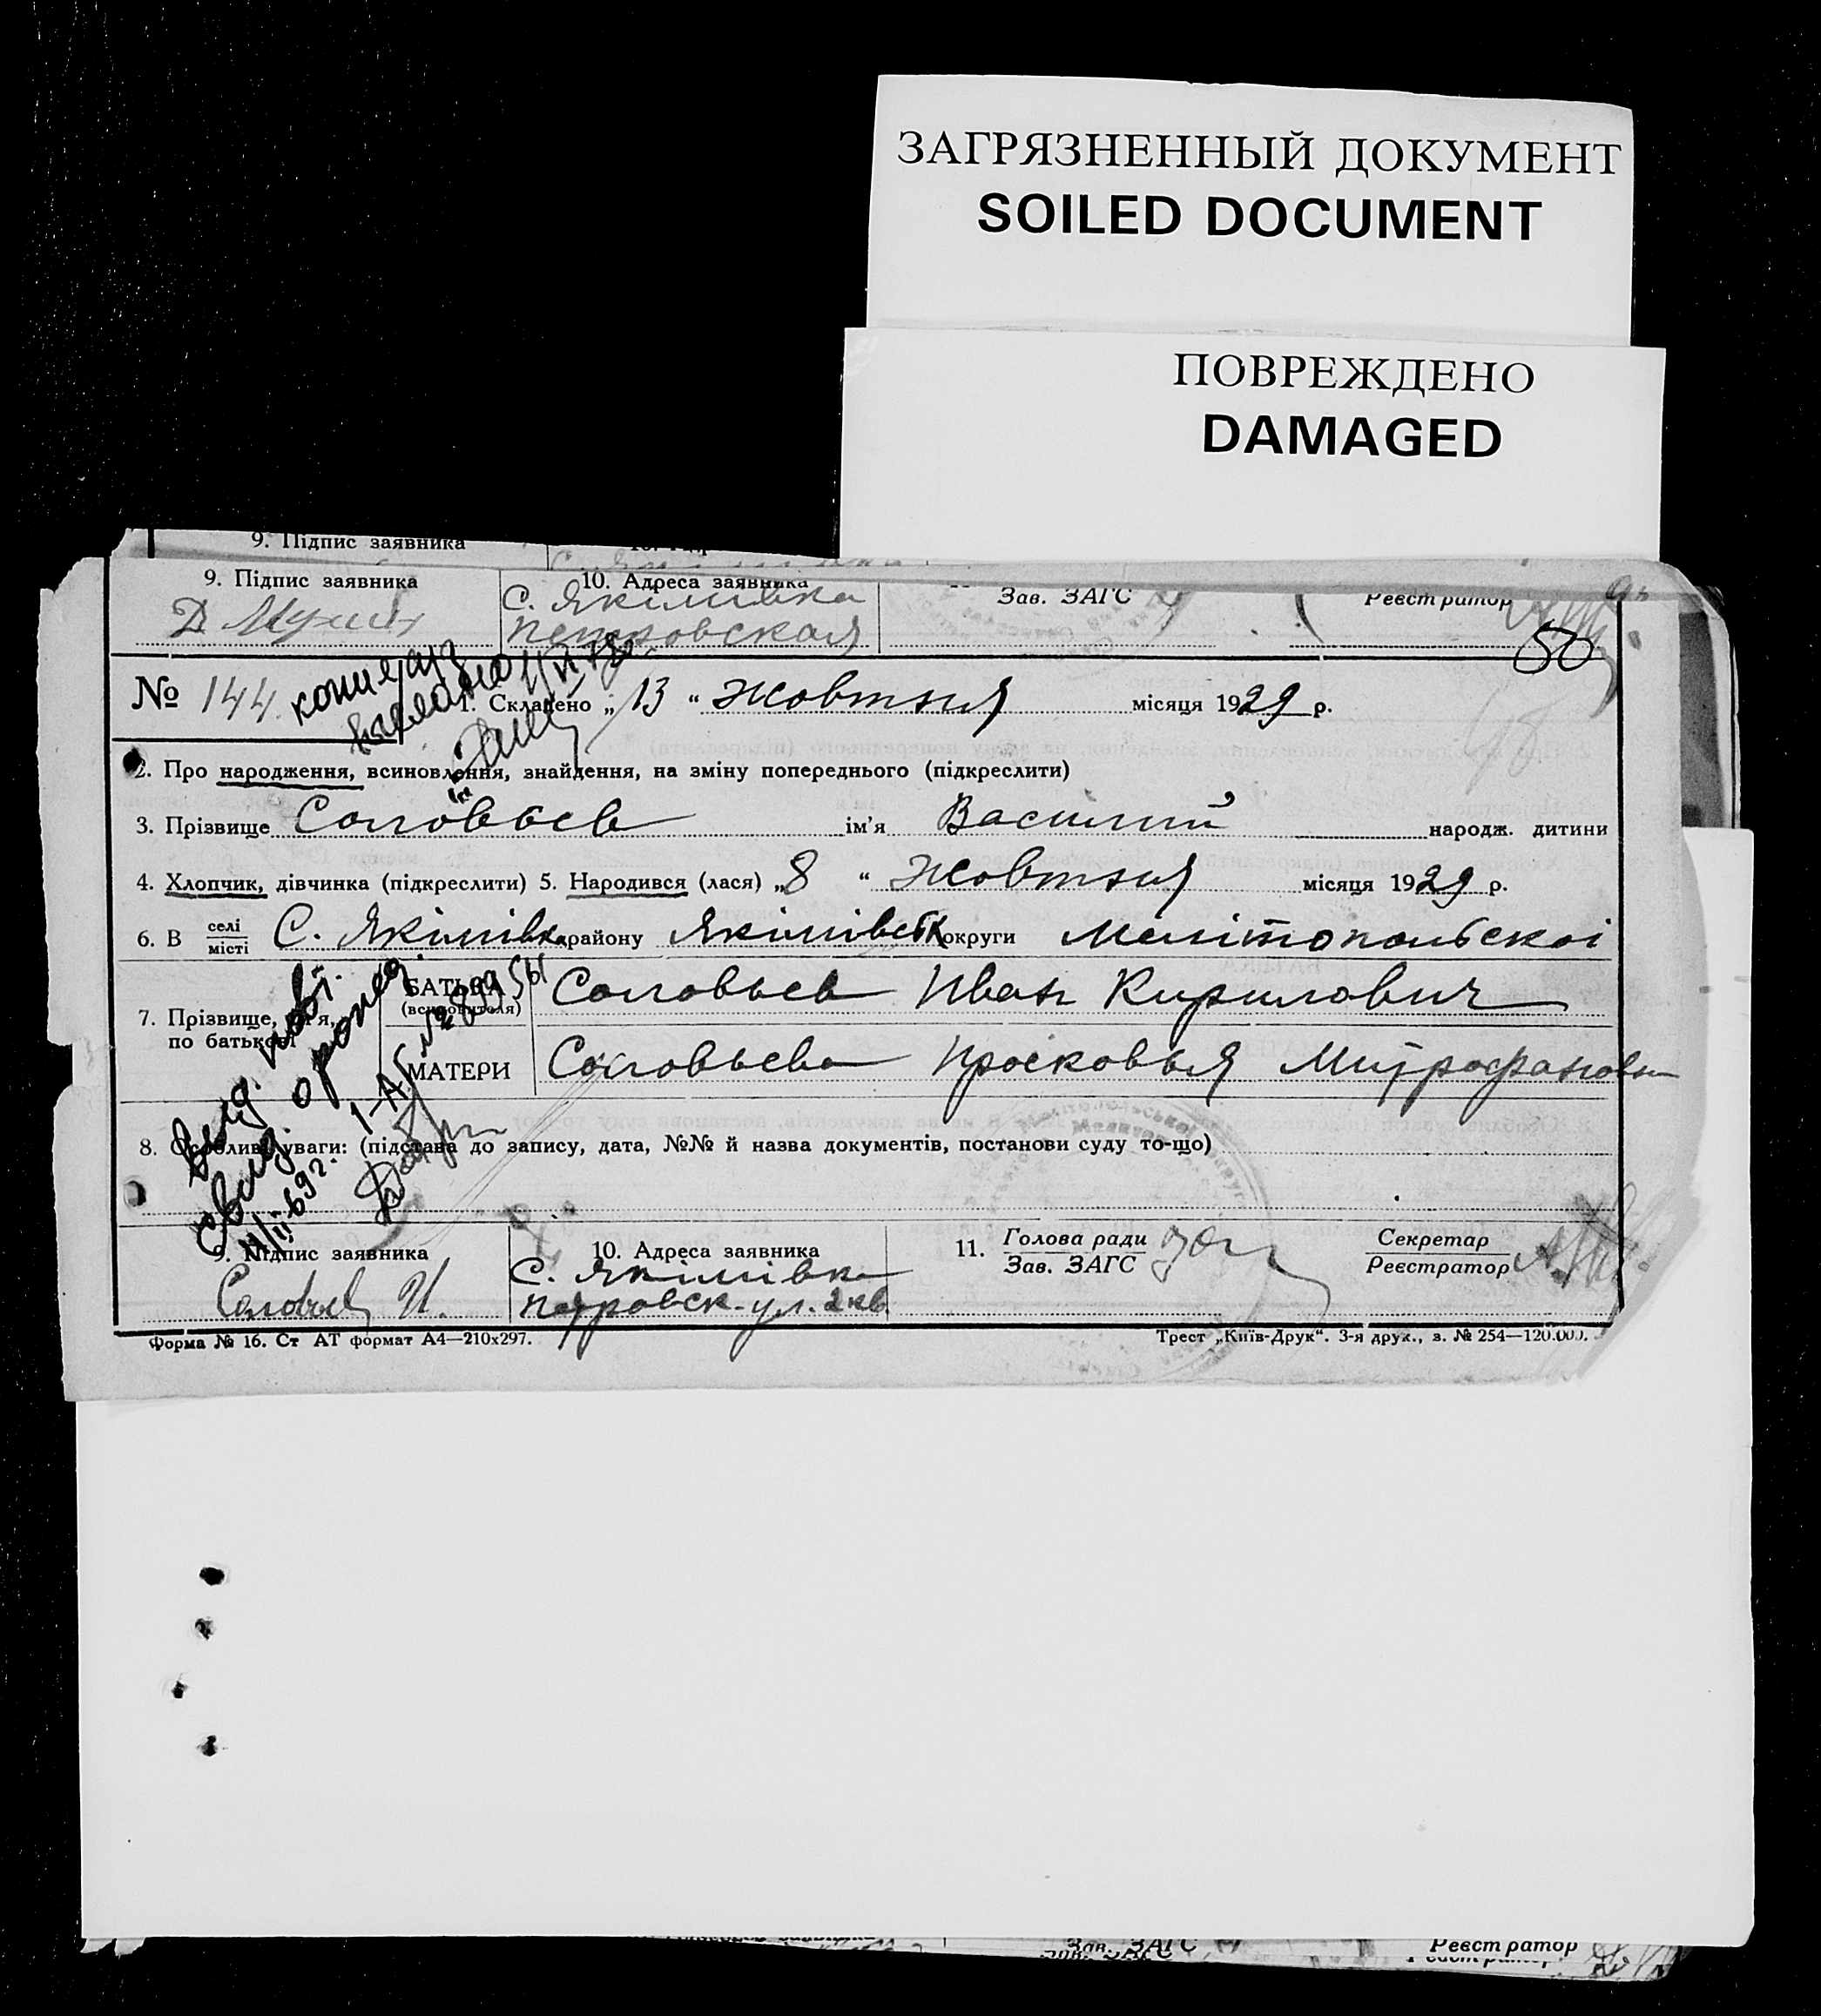 ЗАГРЯЗНЕННЫЙ ДОКУМЕНТ
SOILED DOCUMENT
ПОВРЕЖДЕНО
DAMAGED
9. Підпис заявника
9. Підпис заявника 10. Адреса заявника Зав. ЗАГС Реєстратор
С. Якімівка
Петровская
50
№ 144. 1. Складено „13“ Жовтня місяця 1929 р.
копия
2. Про народження, всиновлення, знайдення, на зміну попереднього (підкреслити)
3. Прізвище Соловьев ім'я Василий народж. дитини
4. Хлопчик, дівчинка (підкреслити) 5. Народився (лася) „8“ Жовтня місяця 1929 р.
6. В селі/місті С. Якімівка району Якімівськ округи Мелітопольскої
7. Прізвище, ім'я, по батькові
БАТЬКА (всиновителя) Соловьев Иван Кирилович
МАТЕРИ Соловьева Просковья Митрофановн
Выд. повт.
свид. о рожд.
1-АП № 899561
8. Особливі уваги: (підстава до запису, дата, №№ й назва документів, постанови суду то-що)
9. Підпис заявника 10. Адреса заявника 11. Голова ради/Зав. ЗАГС Секретар/Реєстратор
Соловьев И. С. Якімівка
Петровск-ул. 2 кв.
Форма № 16. Ст АТ формат А4—210x297. Трест „Київ-Друк“. 3-я друк., з. № 254—120.000.
Зав. ЗАГС Реєстратор